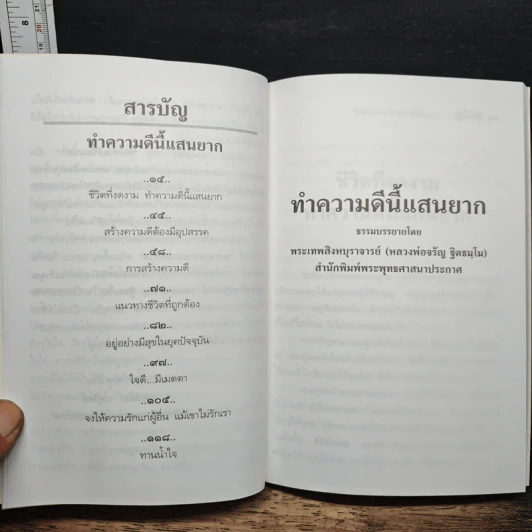 สารบัญ
ทำความดีนี้แสนยาก
..๑๔..
ชีวิตที่งดงาม ทำความดีนี้แสนยาก
..๔๔..
สร้างความดีต้องมีอุปสรรค
..๕๘..
การสร้างความดี
..๗๑..
แนวทางชีวิตที่ถูกต้อง
..๘๒..
อยู่อย่างมีสุขในยุคปัจจุบัน
..๙๗..
ใจดี...มีเมตตา
..๑๐๔..
จงให้ความรักแก่ผู้อื่น แม้เขาไม่รักเรา
..๑๑๘..
ทานน้ำใจ
ทำความดีนี้แสนยาก
ธรรมบรรยายโดย
พระเทพสิงหบุราจารย์ (หลวงพ่อจรัญ ฐิตธมฺโม)
สำนักพิมพ์พระพุทธศาสนาประกาศ
8
21
20